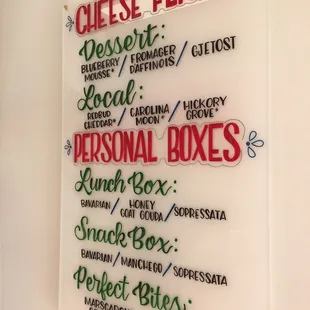 CHEESE
Dessert:
BLUEBERRY MOUSSE* / FROMAGER D'AFFINOIS / GJETOST
Local:
REDBUD CHEDDAR* / CAROLINA MOON* / HICKORY GROVE*
PERSONAL BOXES
Lunch Box:
BAVARIAN / HONEY GOAT GOUDA / SOPRESSATA
Snack Box:
BAVARIAN / MANCHEGO / SOPRESSATA
Perfect Bites: